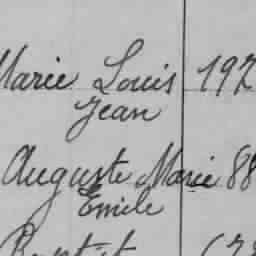 Marie Louis 192
Jean
Auguste Marie 88
Emile